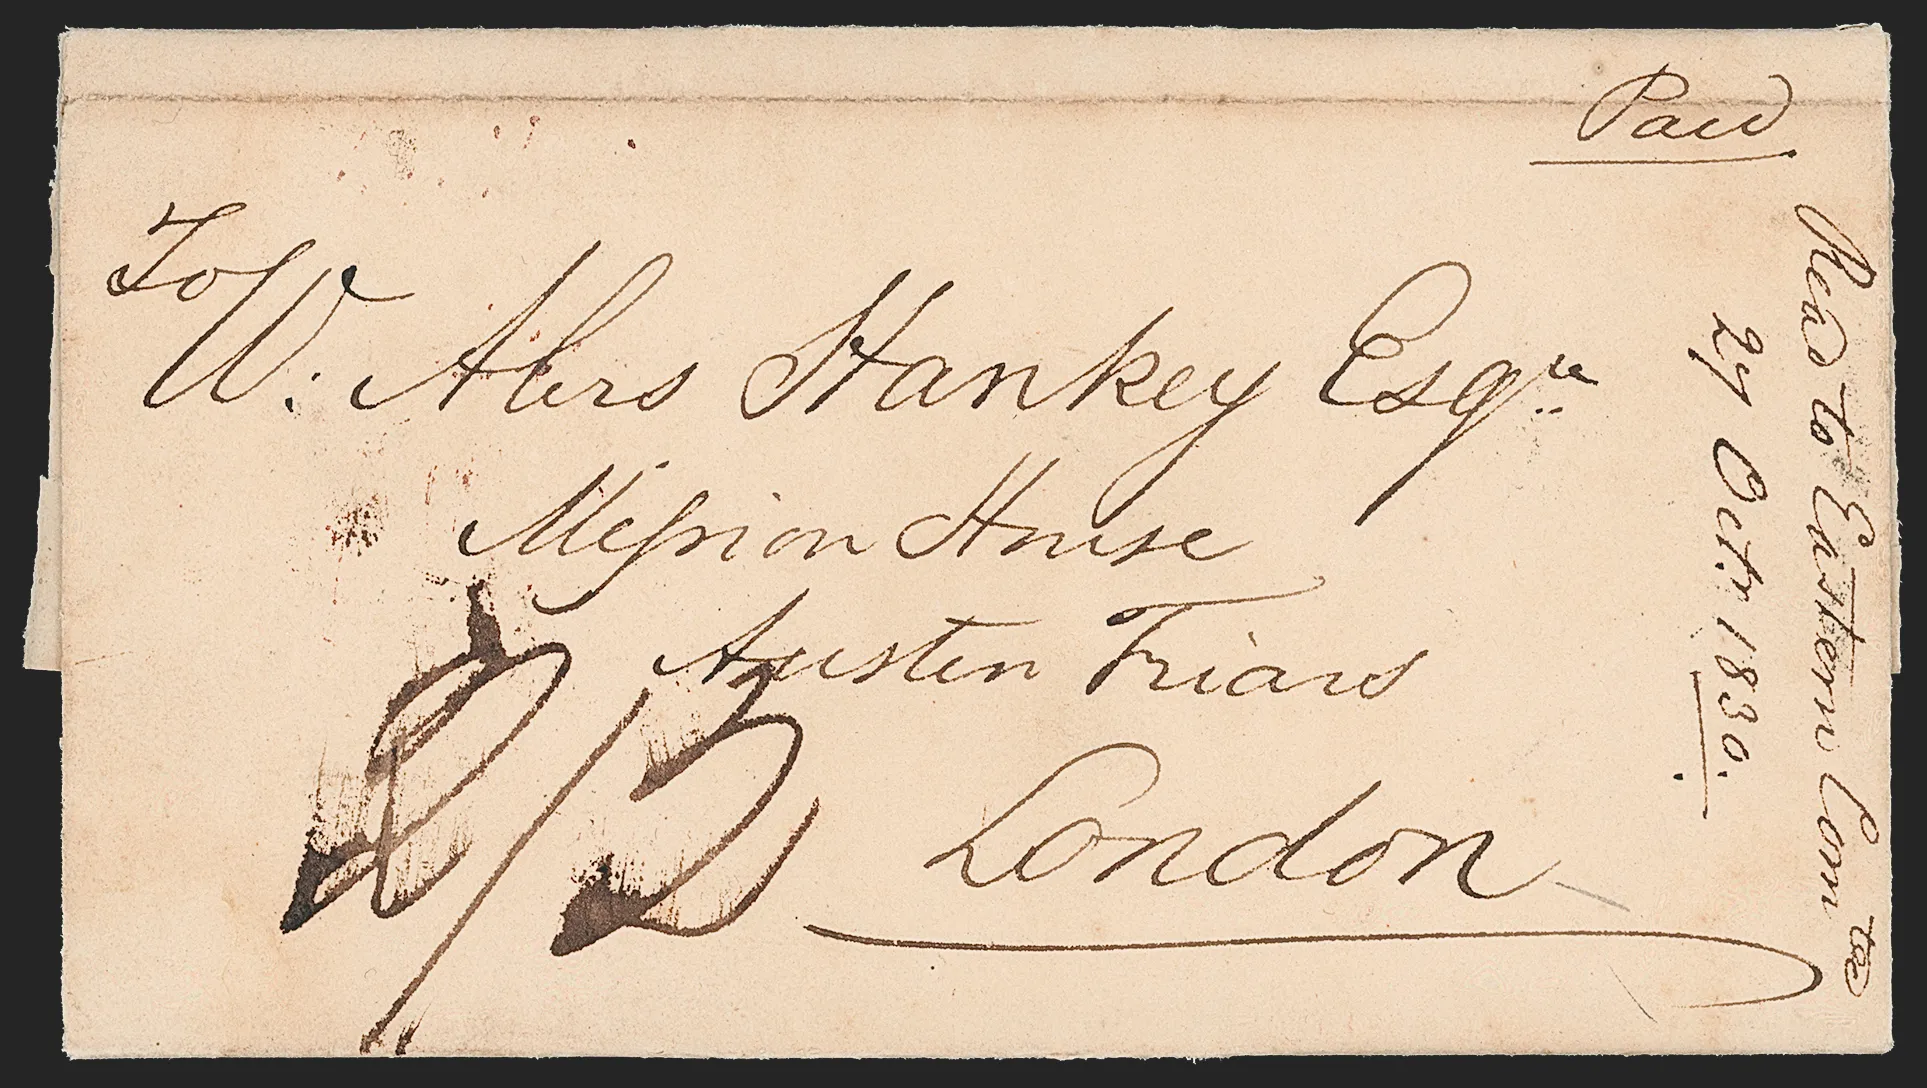 Paid
To
W. Alers Hankey Esqre
Mission House
Austen Friars
London
2/2
Read to Eastern Com tee
27 Octr. 1830.